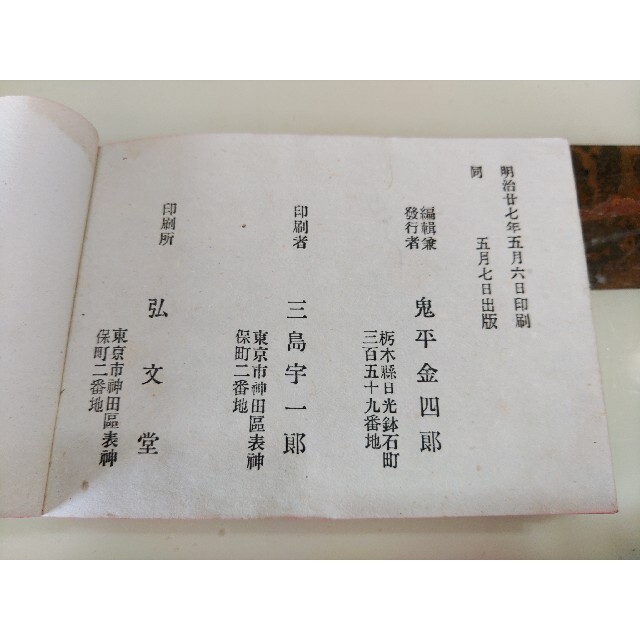 明治廿七年五月六日印刷
同 五月七日出版
編輯兼
發行者
鬼平金四郎
栃木縣日光鉢石町
三百五十九番地
印刷者
三島宇一郎
東京市神田區表神
保町二番地
印刷所
弘文堂
東京市神田區表神
保町二番地